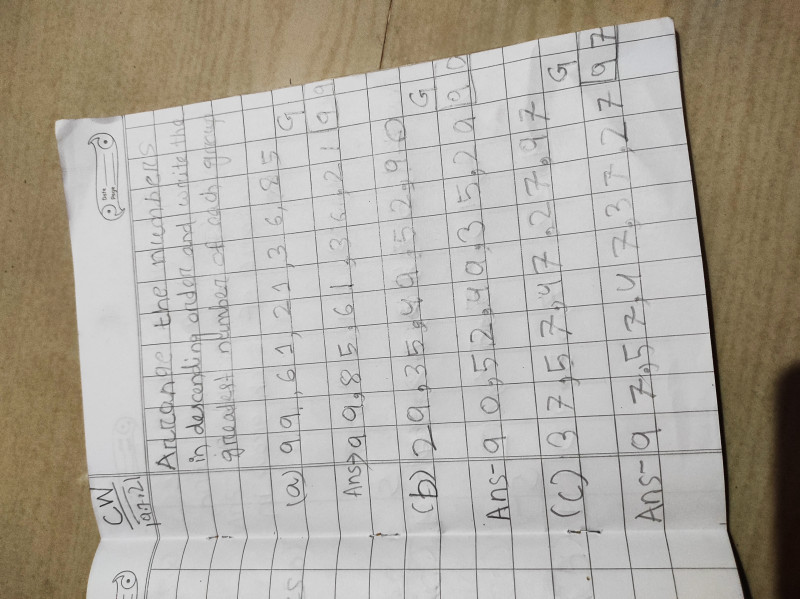 Date
Page
CW
Arrange the numbers
in descending order and write the
greatest number of each group
(a) 99, 61, 21, 36, 85 G
Ans→ 99, 85, 61, 36, 21 99
(b) 29, 35, 49, 52, 90 G
Ans- 90, 52, 49, 35, 29 90
(c) 37, 57, 47, 27, 97 G
Ans- 97, 57, 47, 37, 27 97